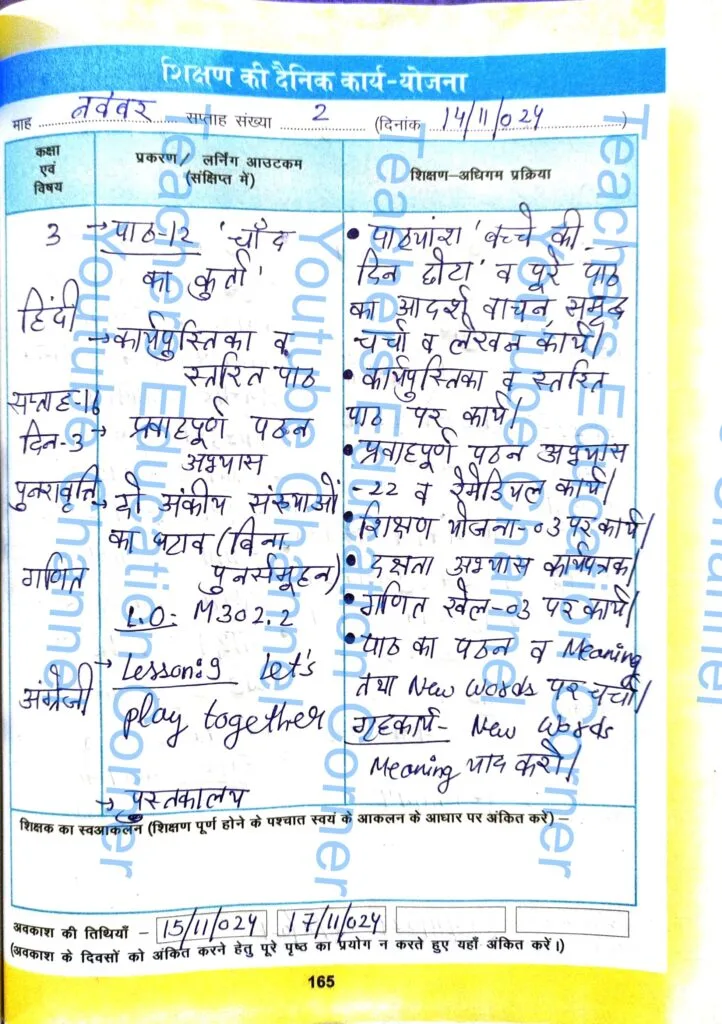 शिक्षण की दैनिक कार्य-योजना
माह नवंबर सप्ताह संख्या 2 (दिनांक 14/11/024)
कक्षा एवं विषय
प्रकरण / लर्निंग आउटकम (संक्षिप्त में)
शिक्षण-अधिगम प्रक्रिया
3
हिंदी
सप्ताह-16
दिन-3
पुनरावृत्ति
गणित
अंग्रेजी
→ पाठ-12 'चाँद
का कुर्ता'
→ कार्यपुस्तिका व
स्तरित पाठ
→ प्रवाहपूर्ण पठन
अभ्यास
→ दो अंकीय संख्याओं
का घटाव (बिना
पुनर्समूहन)
L.O: M302.2
→ Lesson:9 Let's
play together
→ पुस्तकालय
• पाठ्यांश 'बच्चे की
दिन छोटा' व पूरे पाठ
का आदर्श वाचन समूह
चर्चा व लेखन कार्य।
• कार्यपुस्तिका व स्तरित
पाठ पर कार्य।
• प्रवाहपूर्ण पठन अभ्यास
-22 व रेमेडियल कार्य।
• शिक्षण योजना-03 पर कार्य।
• दक्षता अभ्यास कार्यपत्रक।
• गणित खेल-03 पर कार्य।
• पाठ का पठन व Meaning
तथा New words पर चर्चा।
गृहकार्य- New words
Meaning याद करो।
शिक्षक का स्वआकलन (शिक्षण पूर्ण होने के पश्चात स्वयं के आकलन के आधार पर अंकित करें) –
अवकाश की तिथियाँ – 15/11/024 17/11/024
(अवकाश के दिवसों को अंकित करने हेतु पूरे पृष्ठ का प्रयोग न करते हुए यहाँ अंकित करें।)
165
Teachers Education Corner
Youtube Channel
Teachers Education Corner
Youtube Channel
Teachers Education Corner
Youtube Channel
Youtu